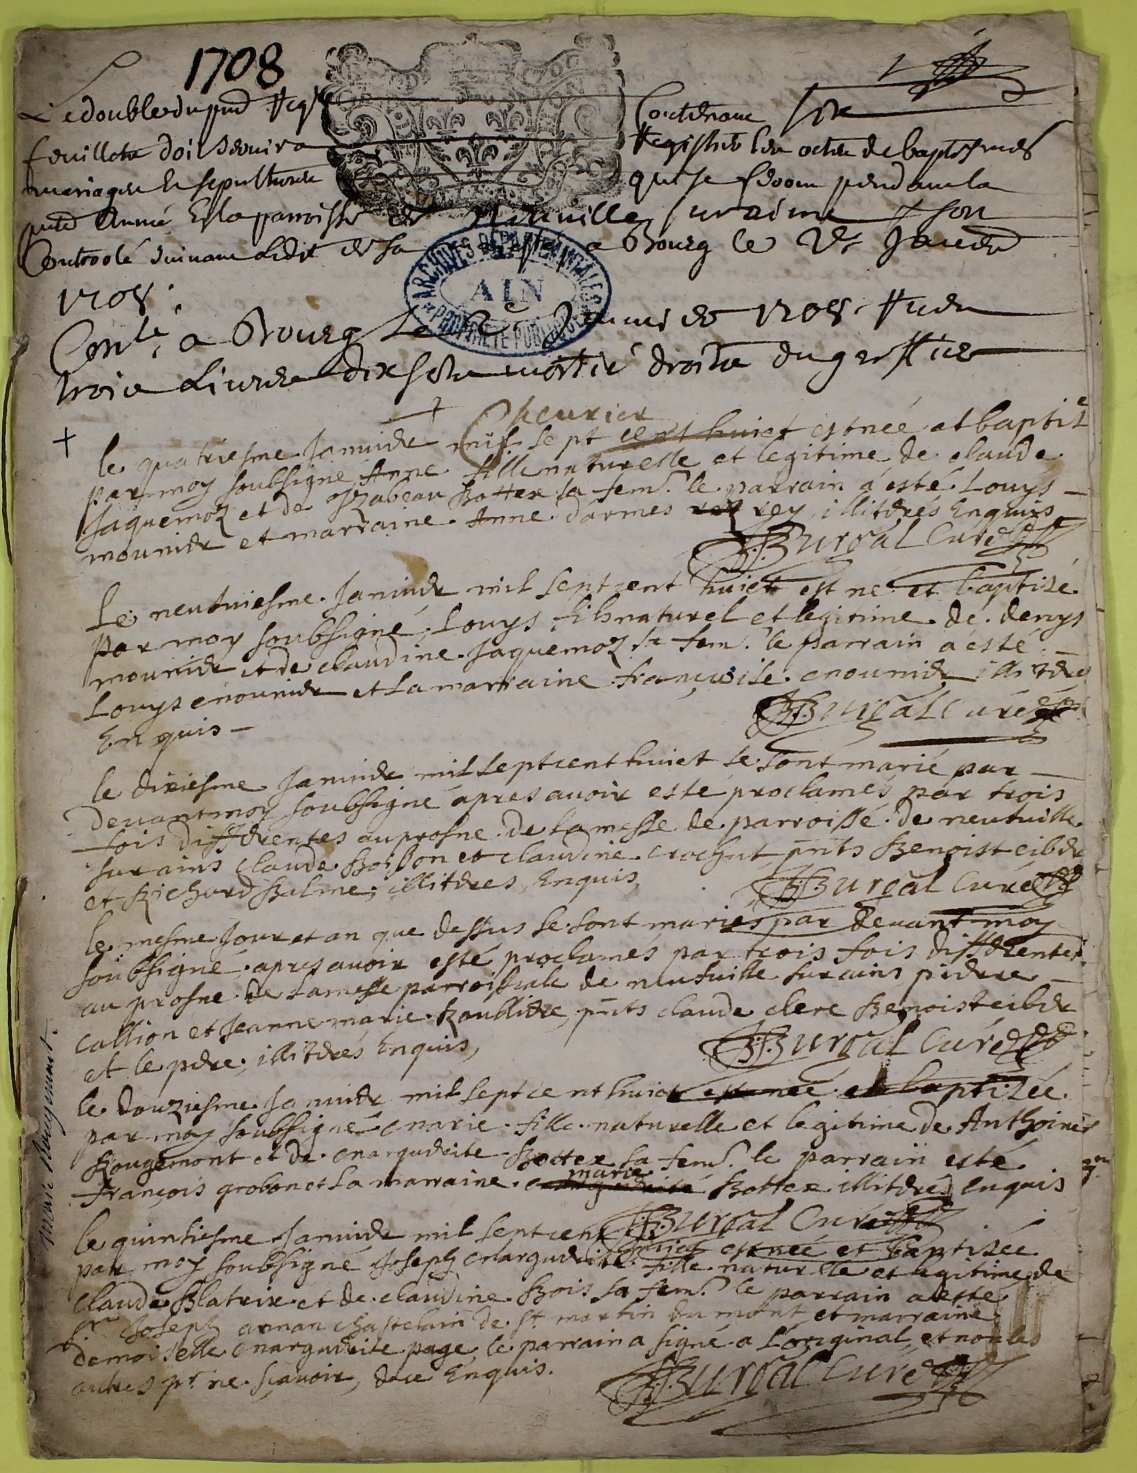 1708
Le double du pnt Regre Contenant six
feuillets doit servir a Registrer les actes de baptesmes
mariages et sepultures qui se feront pendant la
pnte année En la parroisse de Neuville sur ains
Controolé suivant Ledit de sa a Bourg le Janvier
1708.
Conlé a Bourg Le Janvier 1708. Receu
trois Livres dix sols moitié droits du greffier
Cheurier
le quatriesme Janvier mil sept cent huict est née et baptisé
par moy soubsigné Anne fille naturelle et legitime de claude
Jaquemoz et de Yzabeau Bottex sa fem. le parrain a esté Louys
mounier et marraine Anne darmes rey illiterés Enquis
Burgal Curé
Le neuviesme Janvier mil sept cent huict est né et baptizé
par moy soubsigné, Louys fils naturel et legitime de denys
mounier et de claudine Jaquemoz sa fem. le parrain a esté
Louys mounier et La marraine françoise mounier illiterés
Enquis
Burgal Curé
le dixiesme Janvier mil sept cent huict se sont marié par
devant moy soubsigné apres avoir esté proclamés par trois
fois differentes au prosne de La messe de parroisse de neufville
sur ains claude Bolson et claudine crochut pnts Benoist cibier
et Richard Balme illiteres Enquis
Burgal Curé
le mesme Jour et an que dessus se sont mariés par devant moy
soubsigné apres avoir esté proclames par trois fois differentes
au prosne de La messe parroissiale de neufville sur ains pierre
callion et Jeanne marie Roublitre, pnts claude clerc Benoist cibier
et le pere, illiterés Enquis
Burgal Curé
le douziesme Janvier mil sept cent huict est née et baptizée
par moy soubsigné marie fille naturelle et legitime de Anthoine
Rougemont et de marguerite Bottex sa fem. le parrain esté
françois grobon et La marraine marie Bottex illiterés enquis
Burgal Curé
marie Rougemont.
le quinsiesme Janvier mil sept cent huict est née et baptizée
par moy soubsigné Joseph marguerite fille naturelle et legitime de
claude Blatrix et de claudine Bois sa fem. le parrain a esté
Joseph arman chastelain de st martin du mont et marraine
demoiselle marguerite page le parrain a signé a L'original, et non les
autres pr ne sçavoir, de ce Enquis.
Burgal Curé
ARCHIVES DÉPARTEMENTALES
AIN
PROPRIÉTÉ PUBLIQUE